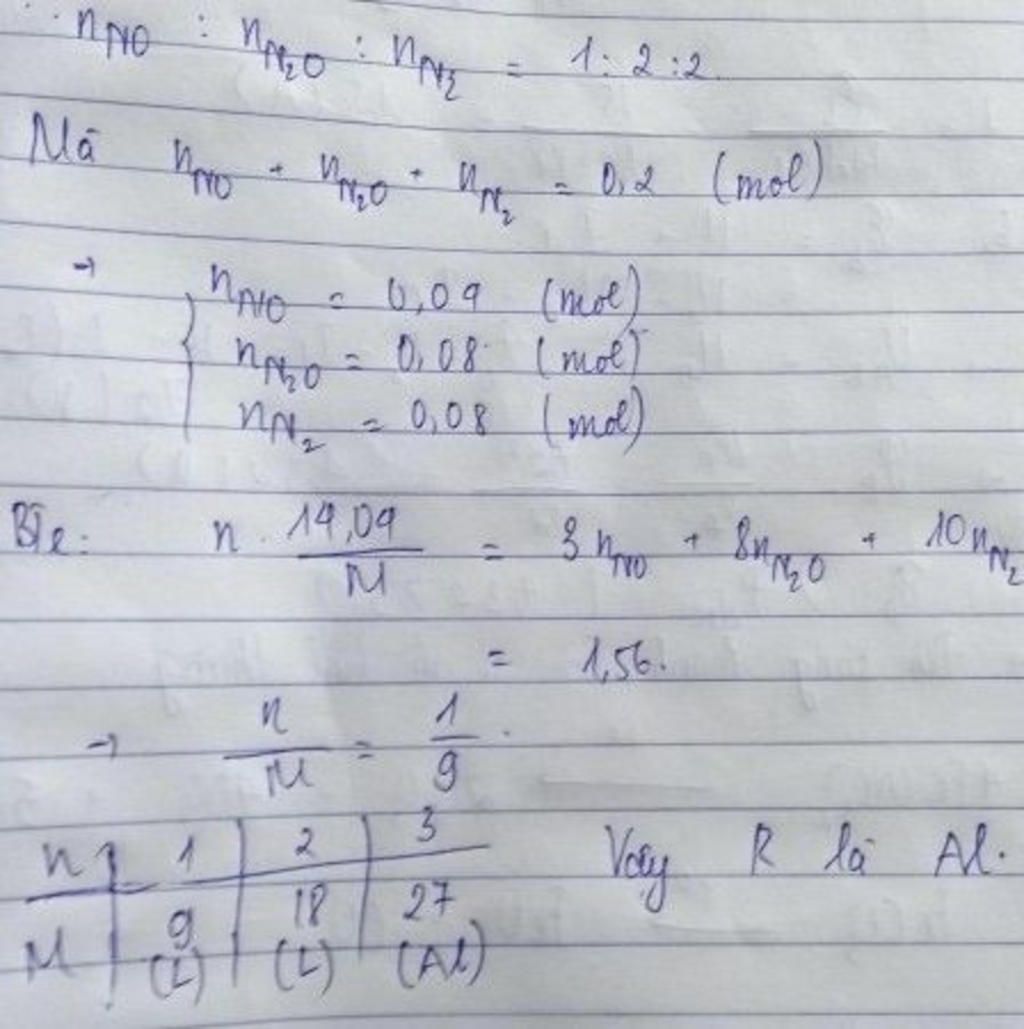 n_NO : n_N₂O : n_N₂ = 1 : 2 : 2.
Mà n_NO + n_N₂O + n_N₂ = 0,2 (mol)
→ { n_NO = 0,04 (mol)
n_N₂O = 0,08 (mol)
n_N₂ = 0,08 (mol)
BTe: n . 14,04/M = 3n_NO + 8n_N₂O + 10n_N₂
= 1,56.
→ n/M = 1/9.
n | 1 | 2 | 3
M | 9 | 18 | 27
(L) | (L) | (Al)
Vậy R là Al.